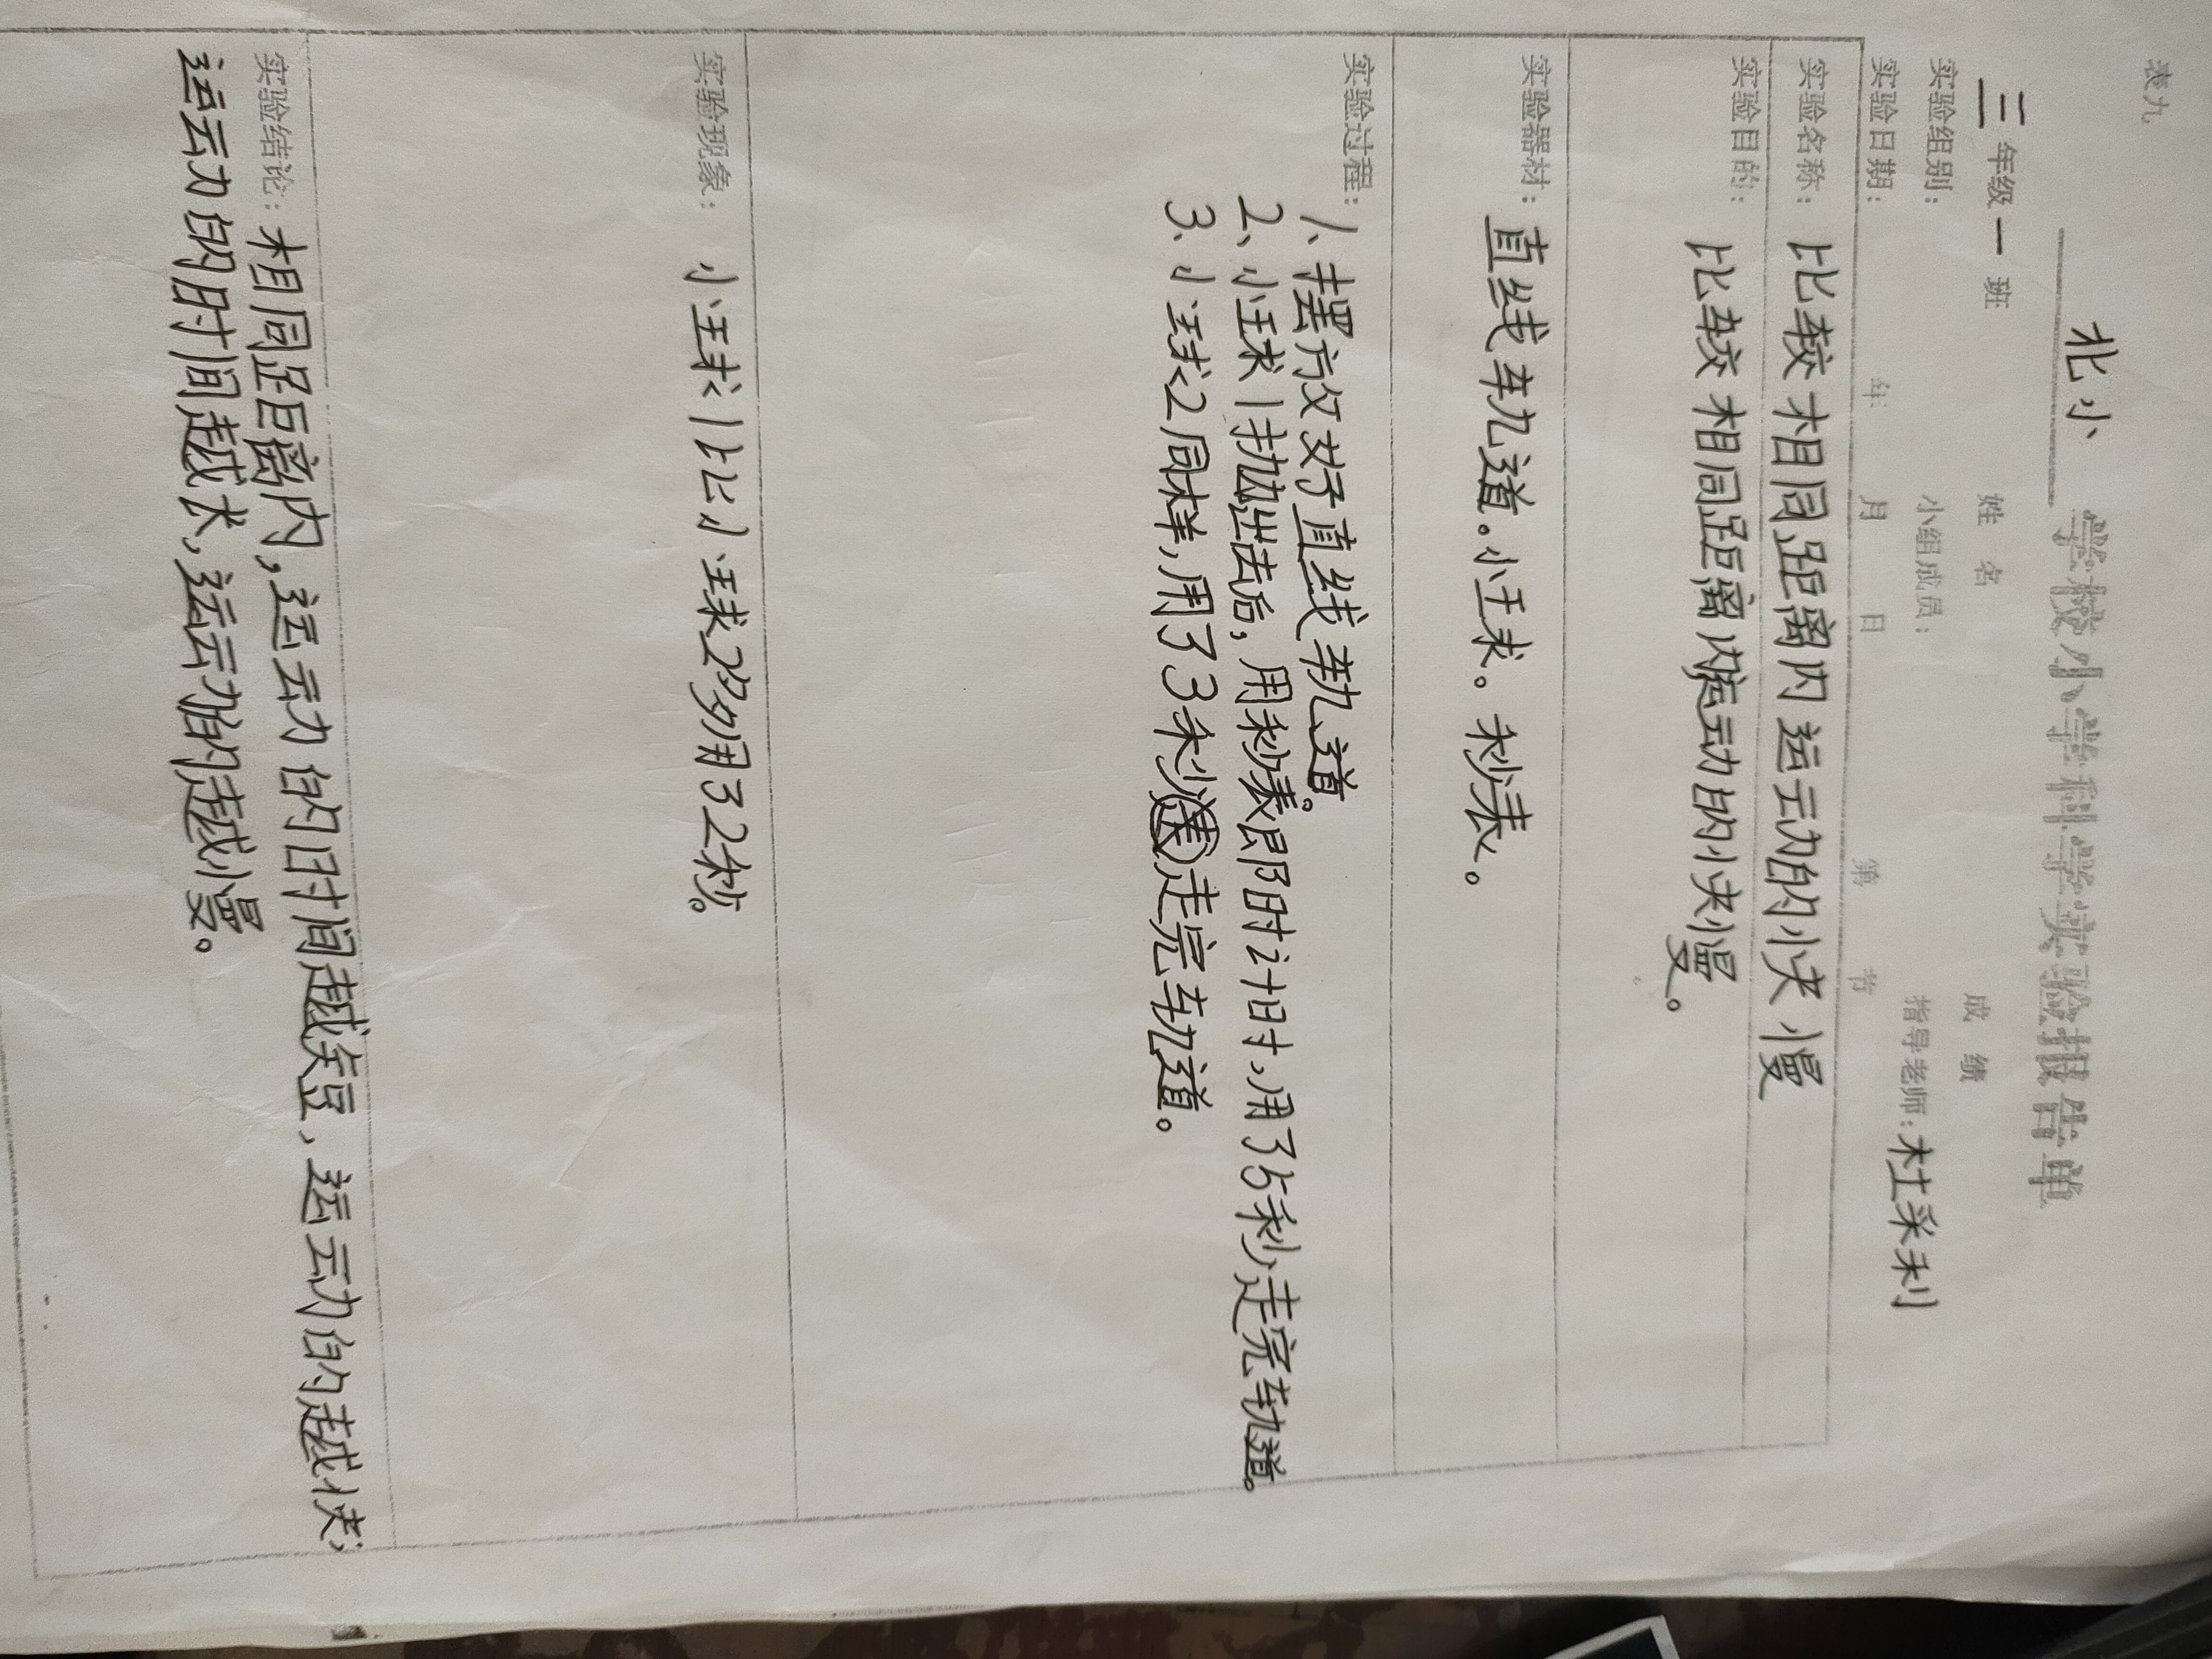 表九
北小 学校小学科学实验报告单
三年级一班 姓名 成绩
实验组别： 小组成员： 指导老师：杜采利
实验日期： 年 月 日 第 节
实验名称：比较相同距离内运动的快慢
实验目的：比较相同距离内运动的快慢。
实验器材：直线轨道。小球。秒表。
实验过程：1、摆放好直线轨道。
2、小球1扔出去后，用秒表即时计时，用了6秒走完轨道。
3、小球2同样，用了3秒走完轨道。
实验现象：小球1比小球2多用32秒。
实验结论：相同距离内，运动的时间越短，运动的越快；
运动的时间越长，运动的越慢。